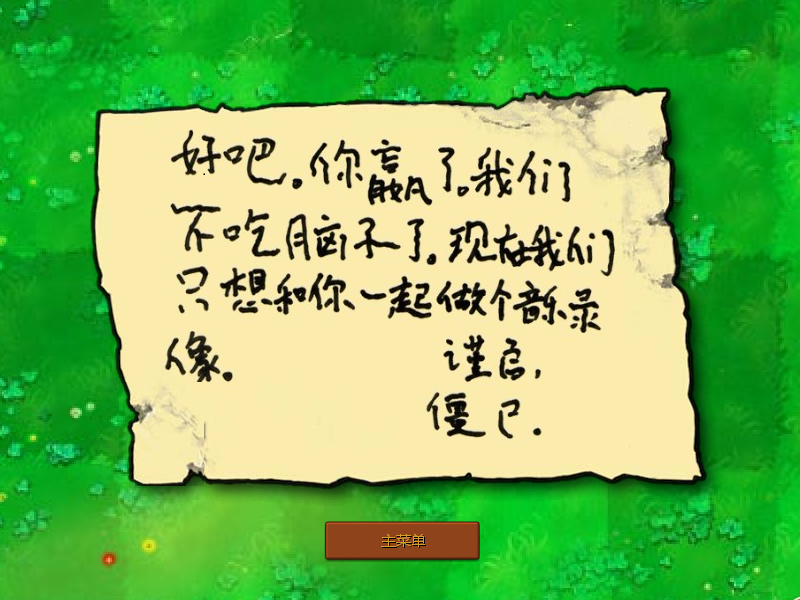 好吧。你赢了。我们
不吃脑子了。现在我们
只想和你一起做个音乐录
像。
谨启,
僵尸.
主菜单